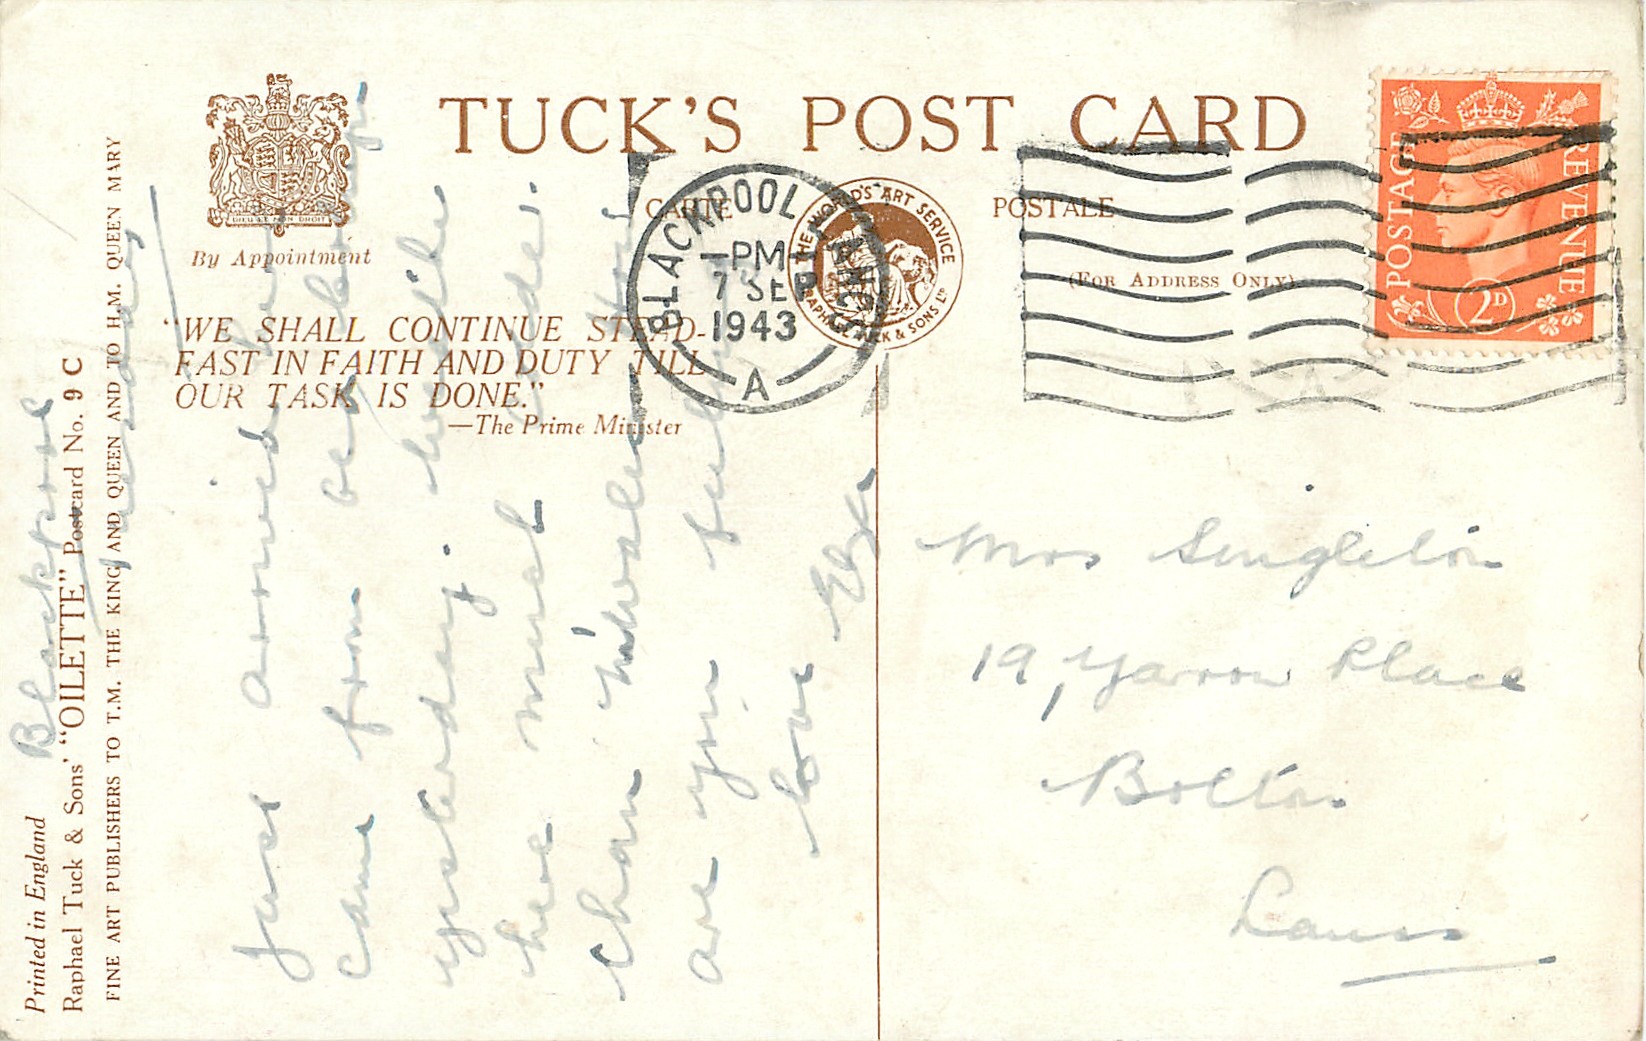 TUCK'S POST CARD
CARTE POSTALE
(FOR ADDRESS ONLY)
DIEU ET MON DROIT
By Appointment
"WE SHALL CONTINUE STEAD-
FAST IN FAITH AND DUTY TILL
OUR TASK IS DONE."
—The Prime Minister
THE WORLD'S ART SERVICE
RAPHAEL TUCK & SONS LTD
BLACKPOOL
-PM-
7 SEP
1943
A
POSTAGE REVENUE
2D
Printed in England
Raphael Tuck & Sons' "OILETTE" Postcard No. 9 C
FINE ART PUBLISHERS TO T.M. THE KING AND QUEEN AND TO H.M. QUEEN MARY
Blackpool
Just arrived
came from
yesterday. here
here much colder.
than
are you
love
Mrs Singleton
19, Yarrow Place
Bolton
Lancs